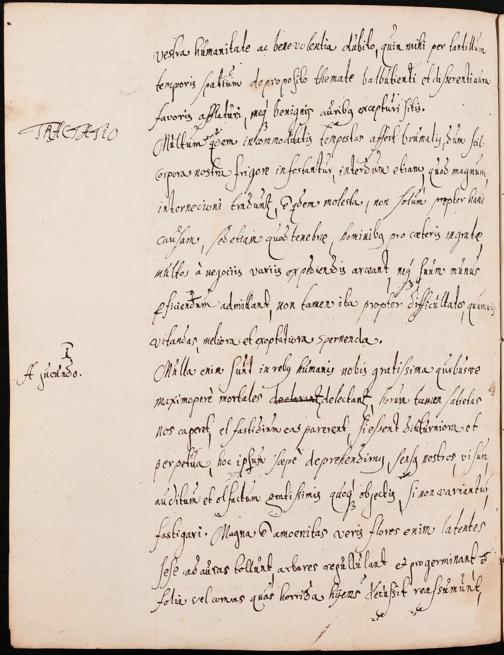 vestra humanitate ac benevolentia dubito, quin mihi per tantillum
temporis spatium de proposito themate balbutienti et disserentiaura
favoris afflaturi, meq benignis auribq excepturi sitis.
TRACTATIO
Multum qdem incommoditatis tempestas affert brumalis, dum scil:
corpora nostra frigore infestantur, interdum etiam quod magnum,
internecioni traduntr, & qdem molesta, non solum propter hanc
causam, sed etiam quod tenebræ, hominibq pro cæteris ingratæ,
multos à negociis variis expediendis arceant, neq suum munus
efficiendum admittant, non tamen ita propter difficultates, quamvis
vitandas, meliora et exoptatiora spernenda.
I
A jucundo.
Multa enim sunt in rebq humanis nobis gratissima quibusve
maximoperè mortales declarant delectant, horum tamen satietas
nos caperet, et fastidium eas pareret, si essent diuturniora et
perpetua, hoc ipsum sæpè deprehendimq, sensq nostros, visum,
auditum et olfactum gratissimis quoq objectis, si non variantur,
fastigari. Magna & amoenitas veris flores enim latentes
sese ad auras tollunt arbores repullulant et progerminant &
folia vel comas quas horrida hijems decussit reassumunt,